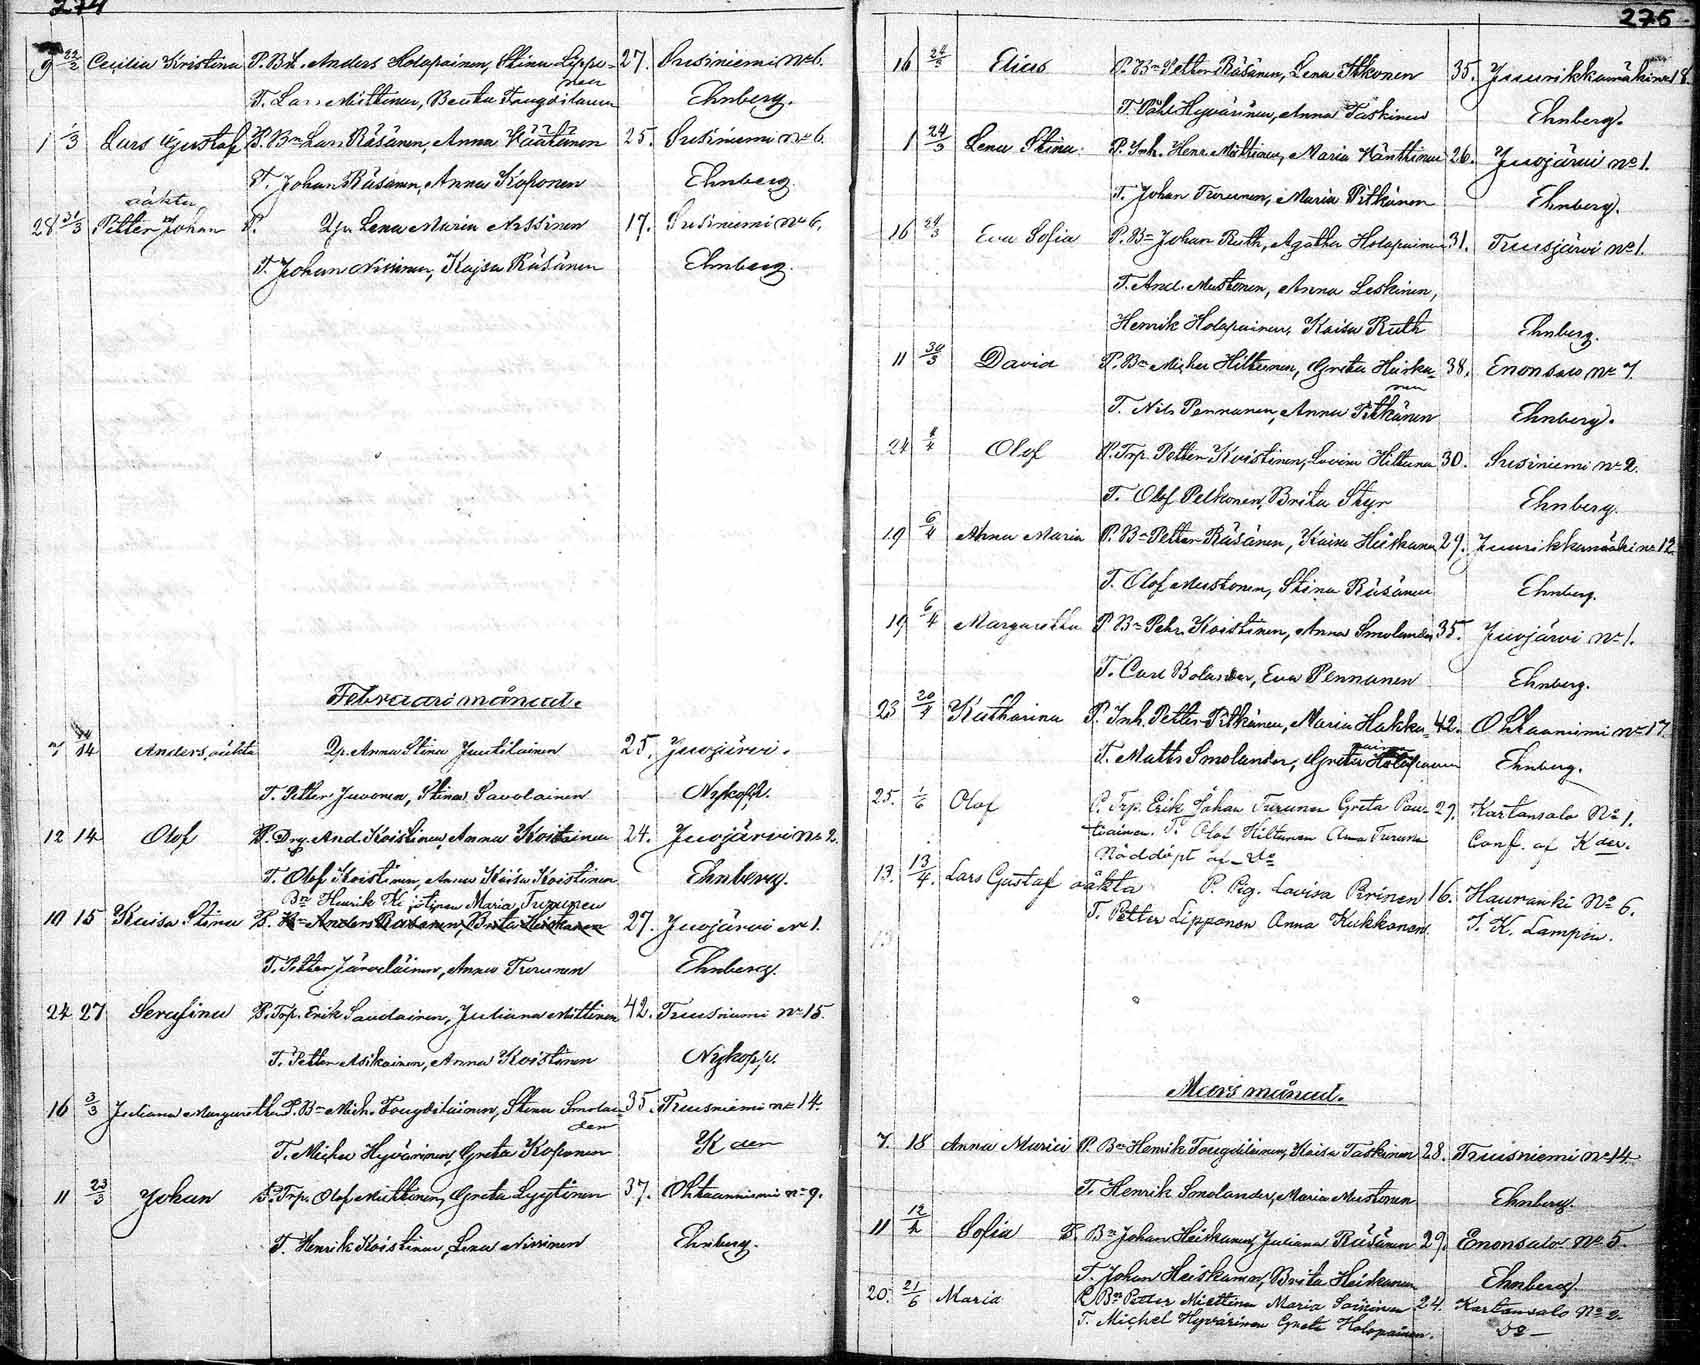 274
9 22/2 Cecilia Kristina P. Bd. Anders Holopainen, Stina Lippo- 27. Susiniemi No 6.
nen
T. Lars Miettinen, Beata Fougdilainen Ehnberg.
1 1/3 Lars Gustaf P. Bn Lars Räsänen, Anna Väätäinen 25. Susiniemi No 6.
T. Johan Räsänen, Anna Koponen Ehnberg.
oäkta
28 31/3 Petter Johan P. Lena Maria Nissinen 17. Susiniemi No 6.
T. Johan Nissinen, Kajsa Räsänen Ehnberg.
Februari månad.
7 14 Anders, oäkta Anna Stina Juutilainen 25. Juojärvi.
T. Petter Juvonen, Stina Savolainen Nykopp.
12 14 Olof P. Drg. And. Koistinen, Anna Koistinen 24. Juojärvi No 2.
T. Olof Koistinen, Anna Kaisa Koistinen Ehnberg.
Bn Henrik Maria Turunen
10 15 Kaisa Stina P. Bn Anders Räsänen, Brita Heiskanen 27. Juojärvi No 1.
T. Petter Järveläinen, Anna Turunen Ehnberg.
24 27 Serafina P. Trp. Erik Savolainen, Juliana Miettinen 42. Tuusniemi No 15.
T. Petter Asikainen, Anna Koistinen Nykopp.
16 3/3 Juliana Margaretha P. Bn Mich. Fougdilainen, Stina Smolan- 35. Tuusniemi No 14.
der
T. Michel Hyvärinen, Greta Koponen K der
11 23/3 Johan P. Trp. Olof Miettinen, Greta Lyytinen 37. Ohtaanniemi No 9.
T. Henrik Koistinen, Lena Nissinen Ehnberg.
275
16 24/3 Elias P. Bn Petter Räsänen, Lena Itkonen 35. Juurikkamäki No 18.
T. Påhl Hyvärinen, Anna Taskinen Ehnberg.
1 24/3 Lena Stina P. Inh. Henr. Miettinen, Maria Känttinen 26. Juojärvi No 1.
T. Johan Turunen, Maria Pitkänen Ehnberg.
16 24/3 Eva Sofia P. Bn Johan Ruth, Agatha Holopainen 31. Tuusjärvi No 1.
T. And. Mustonen, Anna Leskinen,
Henrik Holopainen, Kaisa Ruth Ehnberg.
11 30/3 David P. Bn Michel Hiltunen, Greta Heiska- 38. Enonsalo No 7.
nen
T. Nils Pennanen, Anna Pitkänen Ehnberg.
24 4/4 Olof P. Trp. Petter Koistinen, Lovisa Hiltunen 30. Susiniemi No 2.
T. Olof Pelkonen, Brita Styr Ehnberg.
19 6/4 Anna Maria P. Bn Petter Räsänen, Kaisa Heiskanen 29. Juurikkamäki No 12.
T. Olof Mustonen, Stina Räsänen Ehnberg.
19 6/4 Margaretha P. Bn Pehr Koistinen, Anna Smolander 35. Juojärvi No 1.
T. Carl Bolander, Eva Pennanen Ehnberg.
23 20/4 Katharina P. Inh. Petter Pitkänen, Maria Hakka- 42. Ohtaanniemi No 17.
rainen
T. Matts Smolander, Greta Holopainen Ehnberg.
25. 1/6 Olof P. Trp. Erik Johan Turunen Greta Pau- 29. Kartansalo No 1.
tiainen. T. Olof Hiltunen Anna Turunen Conf. af K der.
Nöddöpt af do
13. 13/4. Lars Gustaf oäkta P. Pig. Lovisa Pirinen 16. Hauranki No 6.
T. Petter Lipponen Anna Kukkonen. J. K. Lampén.
Mars månad.
7. 18 Anna Maria P. Bn Henrik Fougdilainen, Kaisa Taskinen 28. Tuusniemi No 14.
T. Henrik Smolander, Maria Mustonen Ehnberg.
11 12/4 Sofia P. Bn Johan Heiskanen, Juliana Räsänen 29. Enonsalo No 5.
T. Johan Heiskanen, Brita Heiskanen Ehnberg.
20. 21/6 Maria P. Bn Petter Miettinen Maria Soininen 24. Kartansalo No 2.
T. Michel Hyvärinen Greta Holopainen. do